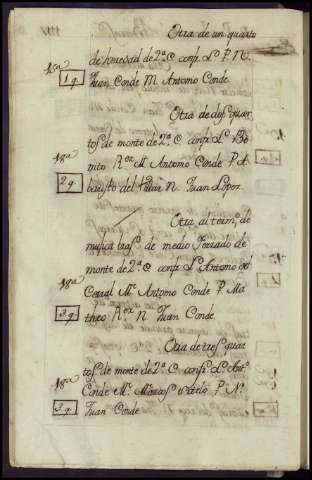 Otra de un quarto
de heredad de 2ª C conf. L. P. N.
Juan Conde M. Antonio Conde.
15ª
1 q.
Otra de dos quar-
tos de monte de 2ª C conf. L. Be-
nito Rez M. Antonio Conde P. A
del N. Juan Lopez.
18ª
2 q.
Otra al term.º de
de medio ferrado de
monte de 2ª C conf. L. Antonio de
Corral M. Antonio Conde P. Ma-
theo Rez N. Juan Conde.
18ª
3 q.
Otra de tres quar-
tos de monte de 2ª C conf. L. Ant.º
Conde M. Marcos P. N.
Juan Conde
18ª
3 q.